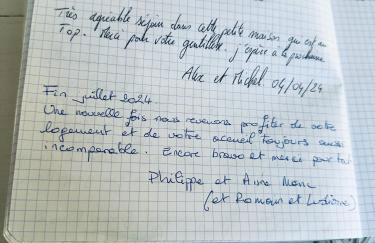 Très agréable séjour dans cette petite maison qui est au
Top. Merci pour votre gentillesse. j'espère à la prochaine
Alex et Michel. 04/04/24
Fin juillet 2024.
Une nouvelle fois nous revenons profiter de votre
logement et de votre accueil toujours aussi
incomparable. Encore bravo et merci pour tout
Philippe et Anne Marie
(et Romain et )